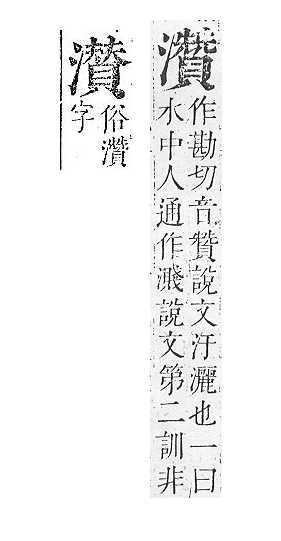 灒
作勘切音贊說文汙灑也一曰
水中人通作濺說文第二訓非
濽
俗灒
字